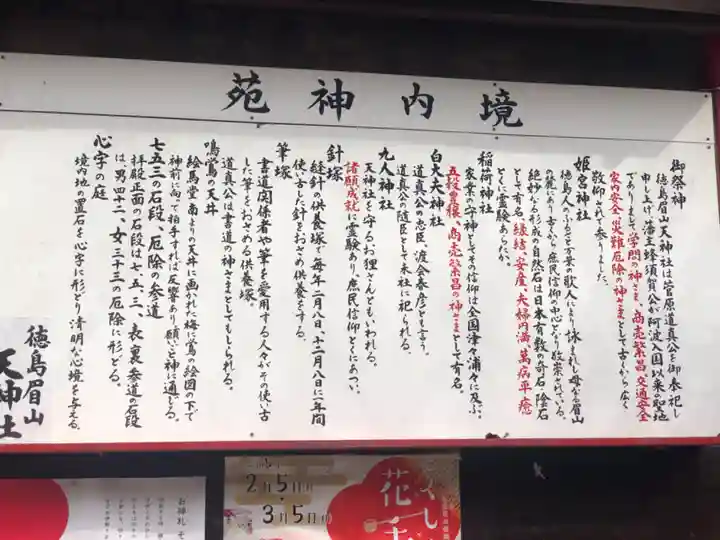 境内神苑
御祭神
徳島眉山天神社は菅原道真公を御奉祀し
申し上げ、藩主蜂須賀公が阿波入国以来の聖地
でありまして学問の神さま、商売繁昌、交通安全
家内安全、災難厄除の神さまとして古くから広く
敬仰されて参りました。
姫宮神社
徳島人のふるさと万葉の歌人により詠まれし母なる眉山
の麓にあり古くから庶民信仰の中心となり敬崇されている。
絶妙なる形成の自然石は日本有数の奇石・陰石
として有名、縁結、安産、夫婦円満、萬病平癒
とくに霊験あらたか。
稲荷神社
家業の守神としてその信仰は全国津々浦々に及ぶ。
五穀豊穣、商売繁昌の神さまとして有名。
白太夫神社
道真公の忠臣、渡会春彦とも言う。
九人神社
道真公の随臣として末社に祀られる。
天神社を守る、お狸さんともいわれる。
諸願成就に霊験あり、庶民信仰とくにあつい。
針塚
縫針の供養塚で毎年二月八日、十二月八日に一年間
使い古した針をおさめ供養をする。
筆塚
書道関係者や筆を愛用する人々がその使い古
した筆をおさめる供養塚。
道真公は書道の神さまとしてもしられる。
鳴鴬の天井
絵馬堂南よりの天井に画かれた梅に鴬の絵図の下で
神前に向って拍手すれば反響あり願いごと神に通じる。
七五三の石段、厄除の参道
拝殿正面の石段は七、五、三、表裏参道の石段
は、男四十二、女三十三の厄除に形どる。
心字の庭
境内地の置石を心字に形どり清明な心境を与える。
徳島眉山
天神社
2月5日
3月5日
花
お神札